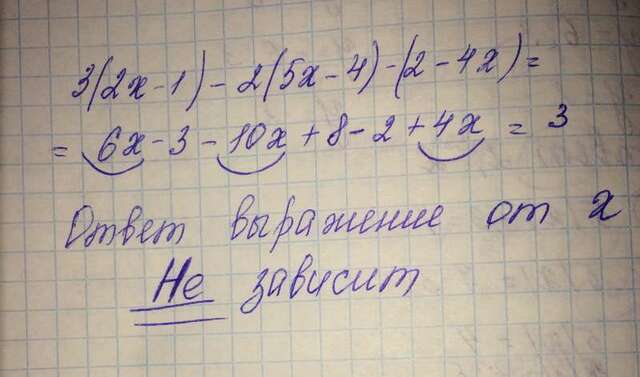 3(2x-1)-2(5x-4)-(2-4x)=
= 6x-3-10x+8-2+4x = 3
Ответ выражение от x
Не зависит